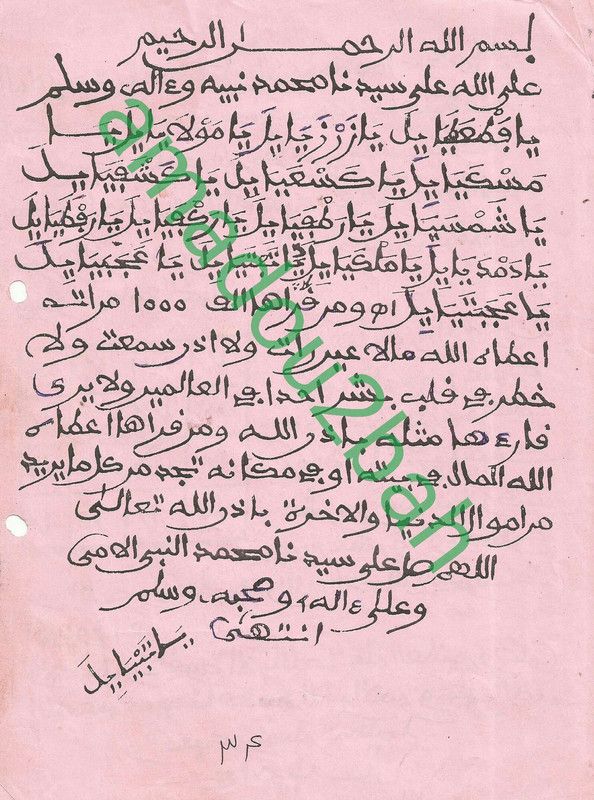 بسم الله الرحمن الرحيم
صلى الله على سيدنا محمد نبيه وءاله وسلم
يا يا مَوْلَايَايِلَ يا
مَسْكَيَايِلَ يا كَسْعَيَايِلَ يا كَشْفَيَايِلَ
يَا شَمْسَيَايِلَ يَا يَا يَا رَفْطَيَايِلَ
يَا دَمْدَيَايِلَ يَا مَلْكَيَايِلَ يَا
يَا اه ومن قرأها الف 1000 مرات
اعطاه الله مالا عين رات ولا اذن سمعت ولا
خطر في قلب بشر احدا في العالمين ولا يرى
قارءها مثله باذن الله ومن قراها اعطاه
الله المال في بيته او في مكانه تجد من كل ما يريد
من اموال الدنيا والاخرة باذن الله تعالى
اللهم صل على سيدنا محمد النبي الامي
وعلى ءاله وصحبه وسلم
انتهى
٣٤
amadou2bah